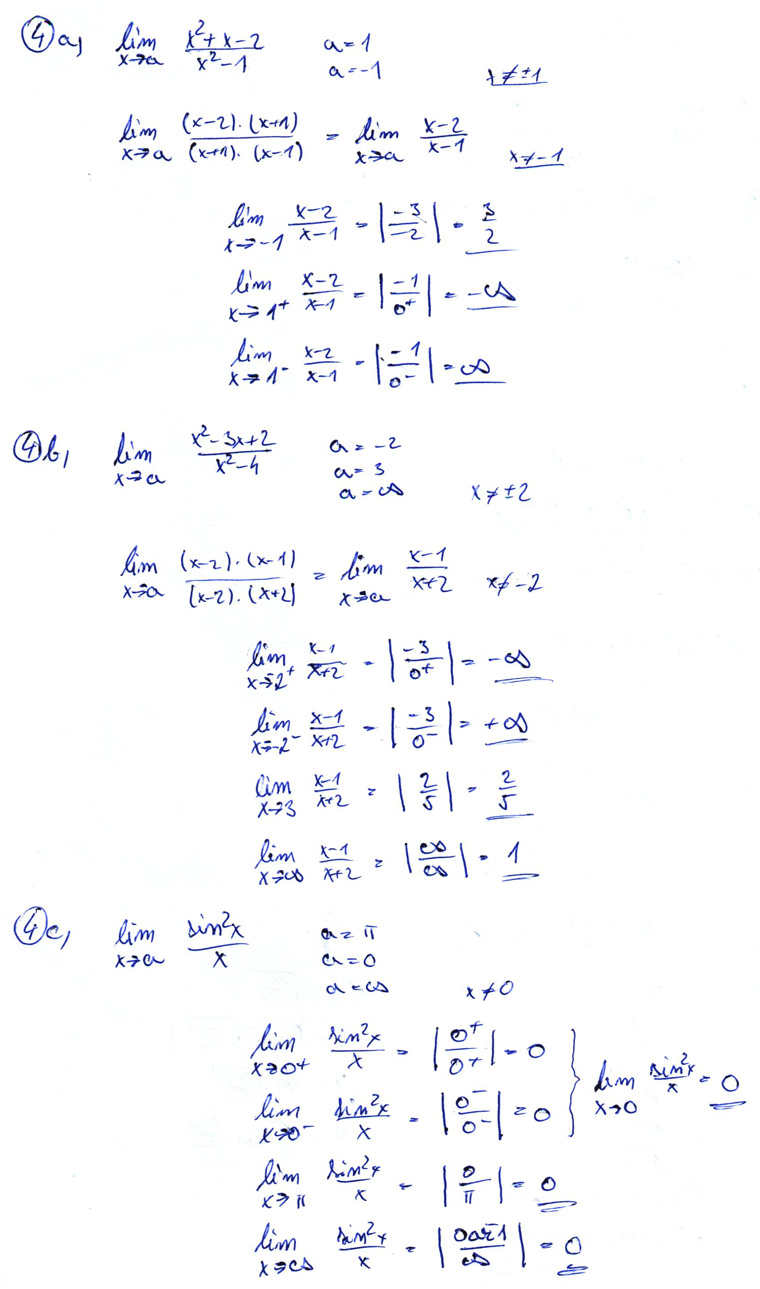 4a, lim x→a (x²+x-2)/(x²-1) a=1
a=-1 x≠±1
lim x→a ((x-2).(x+1))/((x+1).(x-1)) = lim x→a (x-2)/(x-1) x≠-1
lim x→-1 (x-2)/(x-1) = |-3/-2| = 3/2
lim x→1⁺ (x-2)/(x-1) = |-1/0⁺| = -∞
lim x→1⁻ (x-2)/(x-1) = |-1/0⁻| = ∞
4b, lim x→a (x²-3x+2)/(x²-4) a=-2
a=3
a=∞ x≠±2
lim x→a ((x-2).(x-1))/((x-2).(x+2)) = lim x→a (x-1)/(x+2) x≠-2
lim x→-2⁺ (x-1)/(x+2) = |-3/0⁺| = -∞
lim x→-2⁻ (x-1)/(x+2) = |-3/0⁻| = +∞
lim x→3 (x-1)/(x+2) = |2/5| = 2/5
lim x→∞ (x-1)/(x+2) = |∞/∞| = 1
4c, lim x→a sin²x/x a=π
a=0
a=∞ x≠0
lim x→0⁺ sin²x/x = |0⁺/0⁺| = 0
lim x→0⁻ sin²x/x = |0⁻/0⁻| = 0 } lim x→0 sin²x/x = 0
lim x→π sin²x/x = |0/π| = 0
lim x→∞ sin²x/x = |0až1/∞| = 0